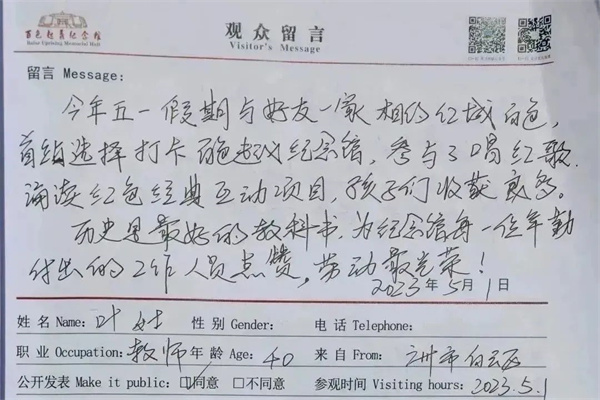 百色起義纪念館
Baise Uprising Memorial Hall
观众留言
Visitor's Message
留言 Message:
今年五一假期与好友一家相约红城百色,
首站选择打卡百色起义纪念馆,参与了唱红歌.
诵读红色经典互动项目,孩子们收获良多。
历史是最好的教科书,为纪念馆每一位辛勤
付出的工作人员点赞,劳动最光荣!
2023年5月1日
姓 名 Name: 叶 性 别 Gender: 电 话 Telephone:
职 业 Occupation: 教师 年 龄 Age: 40 来 自 From: 广州市白云区
公开发表 Make it public: ☑同意 □不同意 参观时间 Visiting hours: 2023.5.1